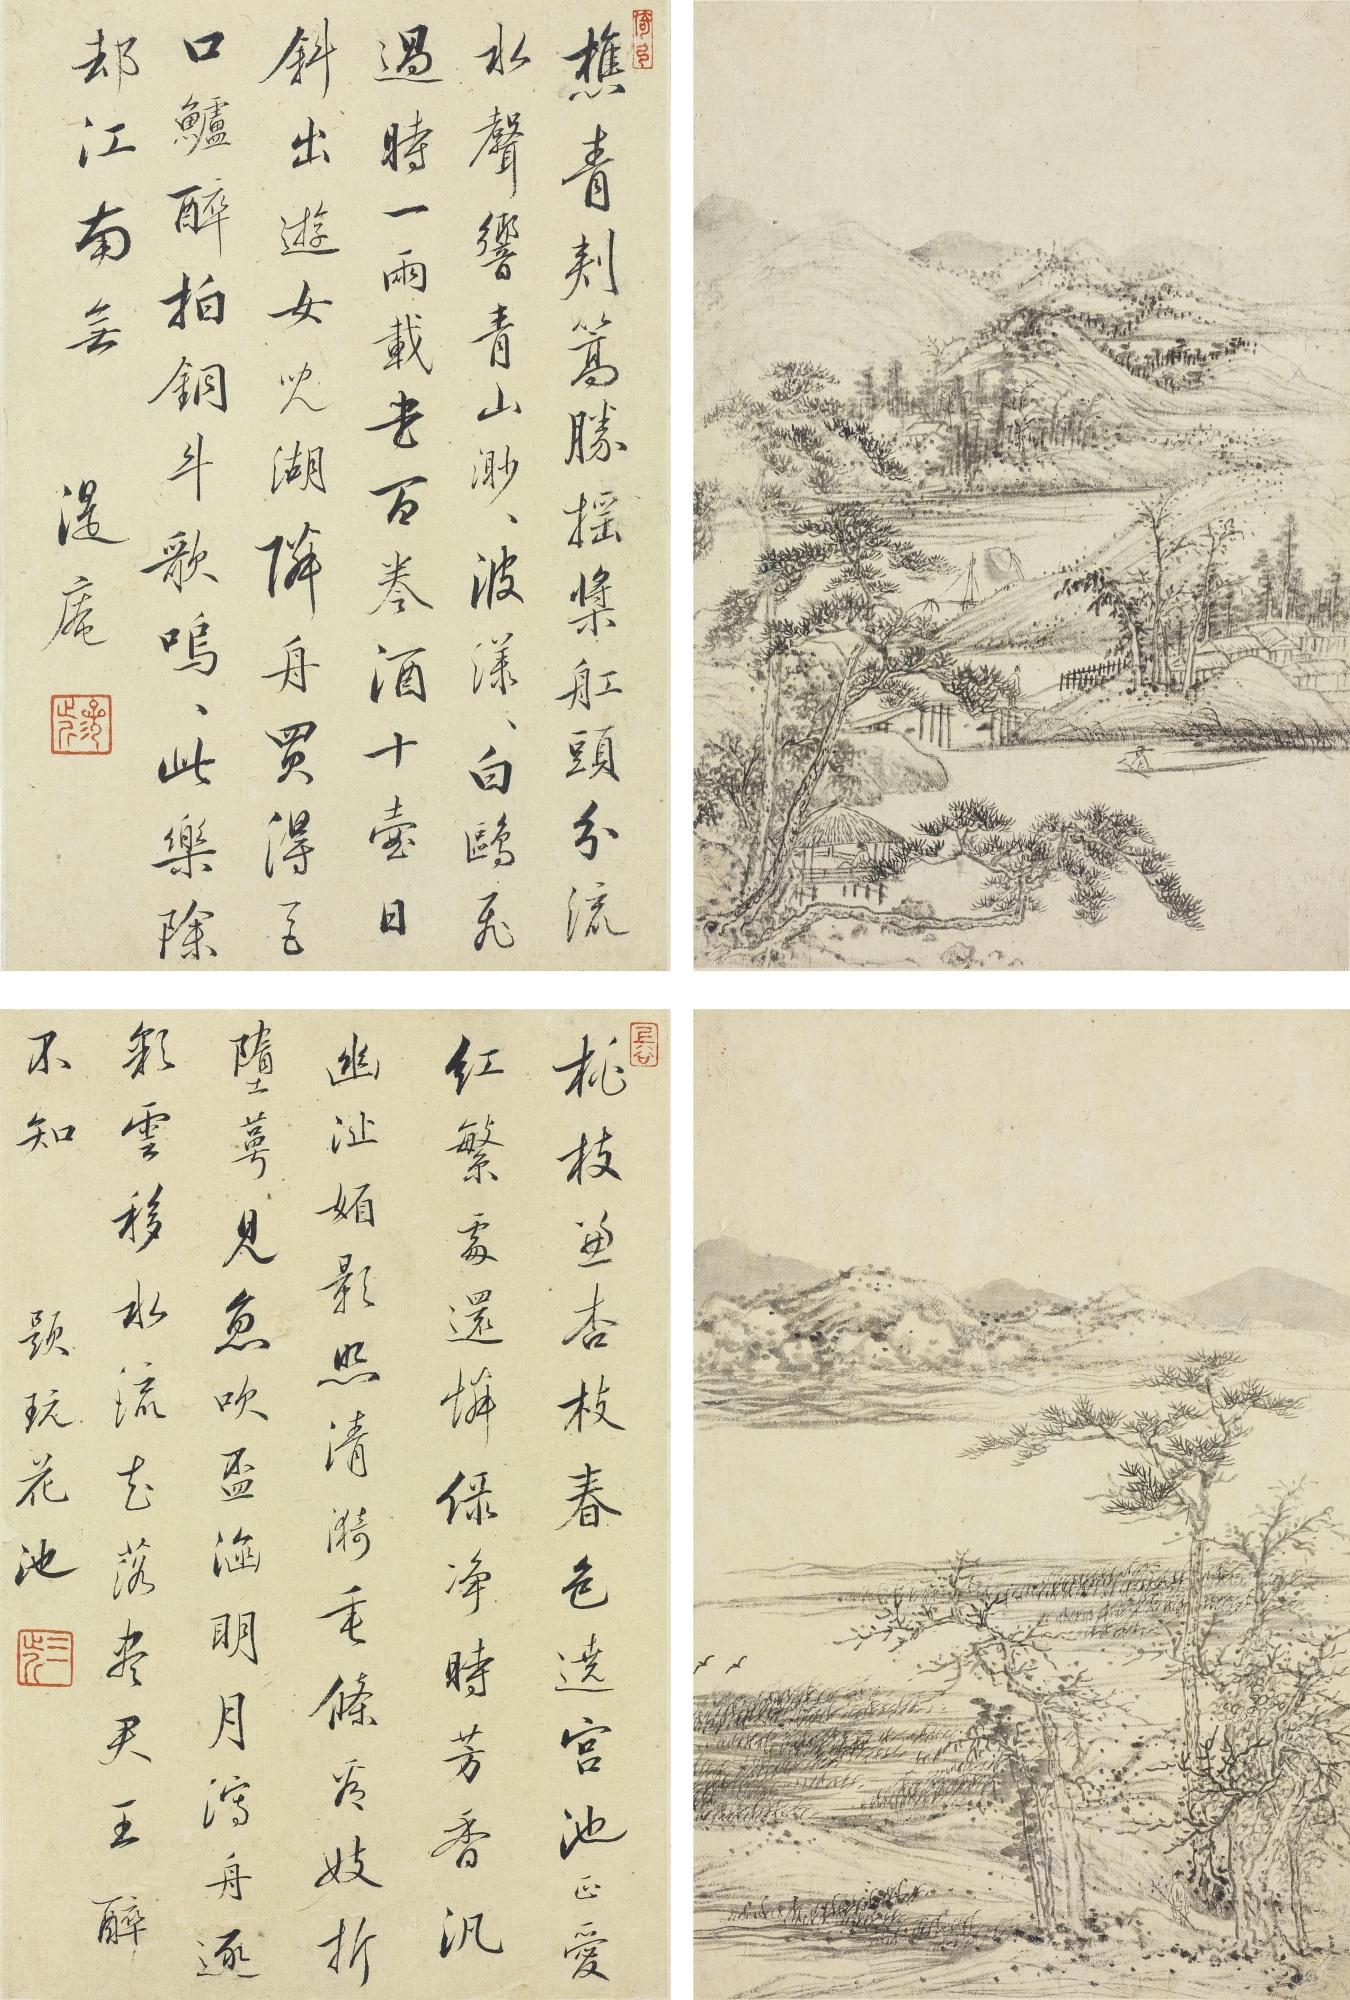 樵青刺篙勝揺槳舡頭分流
水聲響青山渺、波漾、白鷗飛
過時一雨載書百卷酒十壺日
斜出遊女兒湖隣舟買得
口鱸醉拍銅斗歌嗚、此樂除
却江南無
湜庵
桃枝兼杏枝春色遶宮池正愛
紅繁處還憐緑净時芳香汎
幽沚媚影照清漪垂條看妓折
墮萼見魚吹盃涵明月瀉舟逐
彩雲移水流花落盡天王醉
不知
題玩花池